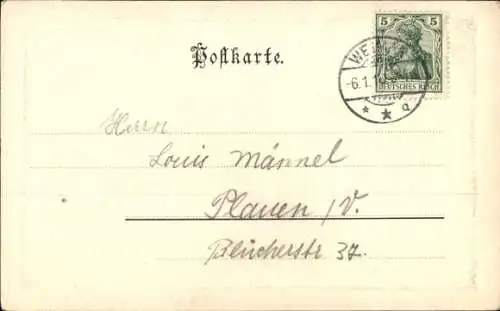 5 5
DEUTSCHES REICH
Postkarte.
-6.1.
* * a
Herrn
Louis Männel
Plauen /V.
Blücherstr 37.